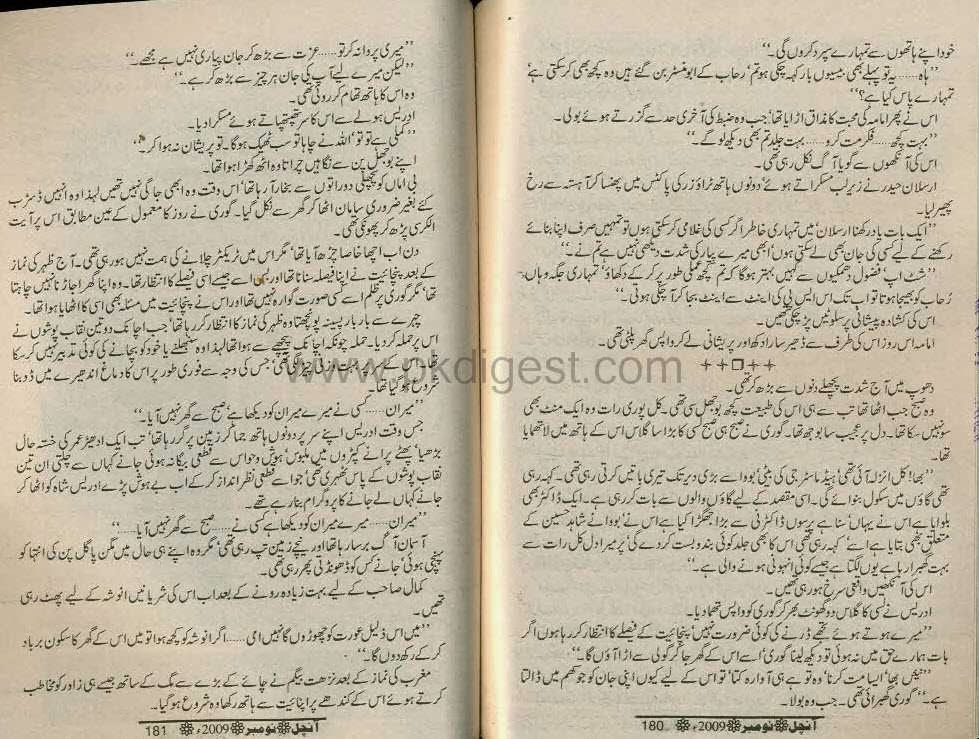 خود اپنے ہاتھوں سے تمہارے سپرد کروں گی۔‘‘
’’ہاہ......یہ تو پہلے بھی بیسیوں بار کہہ چکی ہو تم‘ رحاب کے ابو منسٹر بن گئے ہیں وہ کچھ بھی کر سکتی ہے‘
تمہارے پاس کیا ہے؟‘‘
اس نے پھر امامہ کی محبت کا مذاق اڑایا تھا‘ جب وہ ضبط کی آخری حد سے گزرتے ہوئے بولی۔
’’بہت کچھ......فکر مت کرو......بہت جلد تم بھی دیکھ لو گے۔‘‘
اس کی آنکھوں سے گویا آگ نکل رہی تھی۔
ارسلان حیدر نے زیر لب مسکراتے ہوئے‘ دونوں ہاتھ ٹراؤزر کی پاکٹس میں پھنسا کر آہستہ سے رخ
پھیر لیا۔
’’ایک بات یاد رکھنا ارسلان‘ میں تمہاری خاطر اگر کسی کی غلامی کر سکتی ہوں تو تمہیں صرف اپنا بنائے
رکھنے کے لیے کسی کی جان بھی لے سکتی ہوں‘ ابھی میرے پیار کی شدت دیکھی نہیں ہے تم نے۔‘‘
’’شٹ اپ‘ فضول دھمکیوں سے کہیں بہتر ہوگا کہ تم کچھ عملی طور پر کر کے دکھاؤ‘ تمہاری جگہ وہاں
رُحاب کو بھیجا ہوتا تو اب تک اس ایس پی کی اینٹ سے اینٹ بجا کر آ چکی ہوتی۔‘‘
اس کی کشادہ پیشانی پر سلوٹیں پڑ چکی تھیں۔
امامہ اس روز اس کی طرف سے ڈھیر سارا دکھ اور پریشانی لے کر واپس گھر پلٹی تھی۔
++❐++
دھوپ میں آج شدت پچھلے دنوں سے بڑھ کر تھی۔
وہ صبح جب اٹھا تھا تب سے ہی اس کی طبیعت کچھ بوجھل سی تھی۔ کل پوری رات وہ ایک منٹ بھی
سو نہیں سکا تھا۔ دل پر عجیب سا بوجھ تھا۔ گوری نے صبح ہی صبح لسی کا بڑا سا گلاس اس کے ہاتھ میں لا تھمایا
تھا۔
’’بھا! کل انزلہ آئی تھی‘ ہیڈ ماسٹر جی کی بیٹی‘ بووا سے بڑی دیر تک تیری باتیں کرتی رہی تھی۔ کہہ رہی
تھی گاؤں میں سکول بنوائے گی۔ اسی مقصد کے لیے گاؤں والوں سے بات کر رہی ہے۔ ایک ڈاکٹر بھی
بلوایا ہے اس نے یہاں‘ سنا ہے پرسوں ڈاکٹرنی سے بڑا جھگڑا کیا ہے اس نے‘ بووا نے شاہد حسین کے
متعلق بھی بتایا ہے اسے‘ کہہ رہی تھی اس کا بھی جلد کوئی بندوبست کر دے گی‘ پر میرا دل کل رات سے
بہت گھبرا رہا ہے یوں لگتا ہے جیسے کوئی انہونی ہونے والی ہے۔‘‘
اس کی آنکھیں واقعی سرخ ہو رہی تھیں۔
ادریس نے لسی کا گلاس دو گھونٹ بھر کر گوری کو واپس تھما دیا۔
’’میرے ہوتے ہوئے تجھے ڈرنے کی کوئی ضرورت نہیں‘ پنچائیت کے فیصلے کا انتظار کر رہا ہوں اگر
بات ہمارے حق میں نہ ہوئی تو دیکھ لینا گوری‘ اسے اس کے گھر جا کر گولی سے اڑا آؤں گا۔‘‘
’’نئیں بھا‘ ایسا مت کرنا‘ وہ تو ہے ہی آوارہ کتا‘ تو اس کے لیے کیوں اپنی جان کو جوکھم میں ڈالتا
ہے۔‘‘ گوری گھبرائی تھی۔ جب وہ بولا۔
آنچل نومبر 2009ء 180
’’میری پروا نہ کر تو......عزت سے بڑھ کر جان پیاری نہیں ہے مجھے۔‘‘
’’لیکن میرے لیے آپ کی جان ہر چیز سے بڑھ کر ہے۔‘‘
وہ اس کا ہاتھ تھام کر روئی تھی۔
ادریس ہولے سے اس کا سر تھپتھپاتے ہوئے مسکرا دیا۔
’’کملی ہے تو تو‘ اللہ نے چاہا تو سب ٹھیک ہو گا۔ تو پریشان نہ ہوا کر۔‘‘
اپنے بوجھل پن سے نگاہیں چراتا وہ اٹھ کھڑا ہوا تھا۔
بی اماں کو پچھلی دو راتوں سے بخار آ رہا تھا‘ اس وقت وہ ابھی جاگی نہیں تھیں لہٰذا وہ انہیں ڈسٹرب
کئے بغیر ضروری سامان اٹھا کر گھر سے نکل گیا۔ گوری نے روز کا معمول کے عین مطابق اس پر آیت
الکرسی پڑھ کر پھونکی تھی۔
دن اب اچھا خاصا چڑھ آیا تھا‘ مگر اس میں ٹریکٹر چلانے کی ہمت نہیں ہو رہی تھی۔ آج ظہر کی نماز
کے بعد پنچائیت نے اپنا فیصلہ سنانا تھا اور اسے جیسے اسی فیصلے کا انتظار تھا۔ وہ اپنا گھر اجاڑنا نہیں چاہتا
تھا‘ مگر گوری پر ظلم اسے کسی صورت گوارہ نہیں تھا اور اس نے پنچائیت میں مسئلہ بھی اسی کا اٹھایا ہوا تھا۔
چہرے سے بار بار پسینہ پونچھتا وہ ظہر کی نماز کا انتظار کر رہا تھا‘ جب اچانک دو تین نقاب پوشوں نے
اس پر حملہ کر دیا۔ حملہ چونکہ اچانک پیچھے سے ہوا تھا لہٰذا وہ سنبھلنے یا خود کو بچانے کی کوئی تدبیر نہیں کر سکا
تھا۔ اس کے سر پر بہت وزنی چیز لگی تھی‘ جس کی وجہ سے فوری طور پر اس کا دماغ اندھیرے میں ڈوبنا
شروع ہو گیا تھا۔
’’میران......کسی نے میرے میران کو دیکھا ہے‘ صبح سے گھر نہیں آیا۔‘‘
جس وقت ادریس اپنے سر پر دونوں ہاتھ جما کر زمین پر گر رہا تھا‘ تب ایک ادھیڑ عمر کی خستہ حال
بڑھیا‘ پھٹے پرانے کپڑوں میں ملبوس‘ ہوش و حواس سے قطعی بیگانہ ہوئی جانے کہاں سے چلتی ان تین
نقاب پوشوں کے پاس ٹھہری تھی‘ جو اسے قطعی نظر انداز کر کے اب بے ہوش پڑے ادریس شاہ کو اٹھا کر
جانے کہاں لے جانے کا پروگرام بنا رہے تھے۔
’’میران......میرے میران کو دیکھا ہے کسی نے......صبح سے گھر نہیں آیا......‘‘
آسمان آگ برسا رہا تھا اور نیچے زمین تپ رہی تھی‘ مگر وہ اپنے ہی حال میں مگن پاگل پن کی انتہا کو
پہنچی ہوئی‘ جانے کس کو ڈھونڈتی پھر رہی تھی۔
کمال صاحب کے لیے بہت زیادہ رونے کے بعد اب اس کی شریانیں انوشہ کے لیے پھٹ رہی
تھیں۔
’’میں اس ذلیل عورت کو چھوڑوں گا نہیں امی......اگر انوشہ کو کچھ ہوا تو میں اس کے گھر کا سکون برباد
کر کے رکھ دوں گا۔‘‘
مغرب کی نماز کے بعد نزہت بیگم نے چائے کے بڑے سے مگ کے ساتھ جیسے ہی زاور کو مخاطب
کرتے ہوئے اس کے کندھے پر اپنائیت سے ہاتھ رکھا وہ شروع ہو گیا۔
آنچل نومبر 2009ء 181
www.pkdigest.com